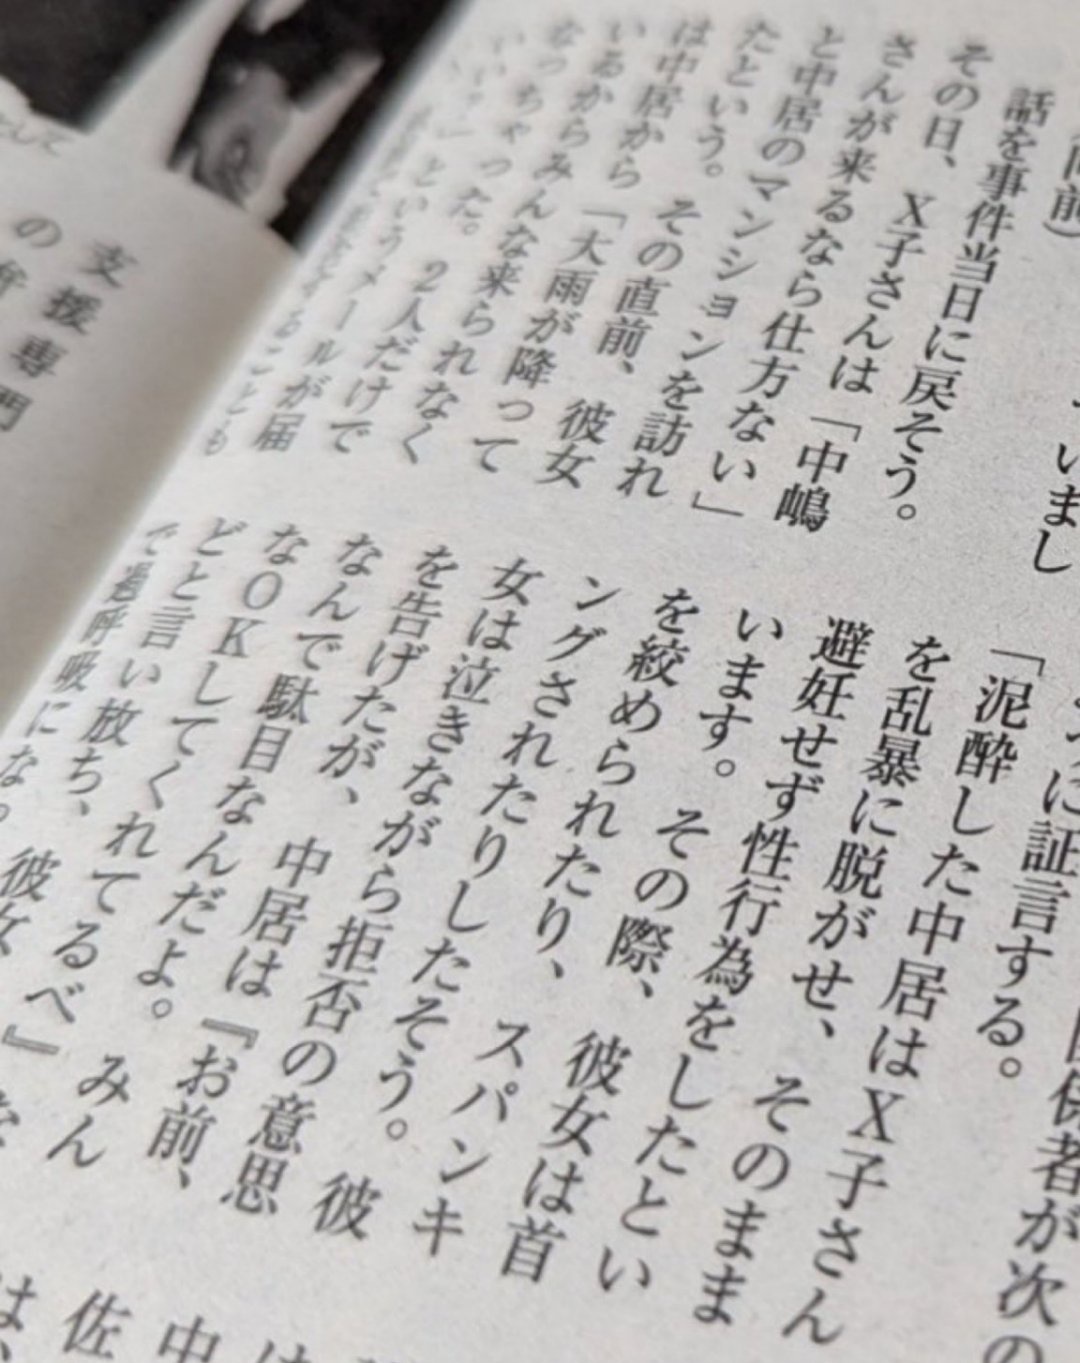 前)
いまし
話を事件当日に戻そう。
その日、X子さんは「中嶋
さんが来るなら仕方ない」
と中居のマンションを訪れ
たという。その直前、彼女
は中居から「大雨が降って
いるからみんな来られなく
なっちゃった。2人だけで
いい?」というメールが届
ることも
係者が次の
ように証言する。
「泥酔した中居はX子さん
を乱暴に脱がせ、そのまま
避妊せず性行為をしたとい
います。その際、彼女は首
を絞められたり、スパンキ
ングされたりしたそう。彼
女は泣きながら拒否の意思
を告げたが、中居は『お前、
なんで駄目なんだよ。みん
なOKしてくれてるべ』な
どと言い放ち、彼女
で過呼吸にな
は
中
佐
は、
支援専門
の